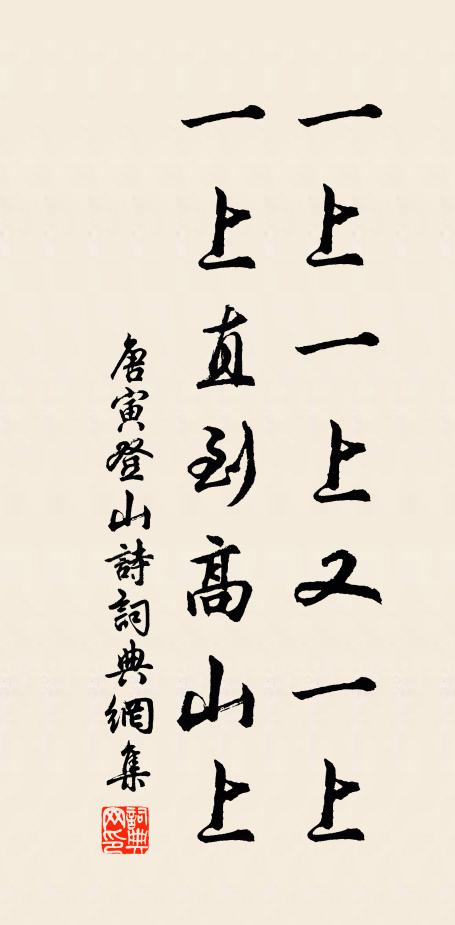 一上一上又一上
一上直到高山上
唐寅登山詩詞典網集
詞典网印